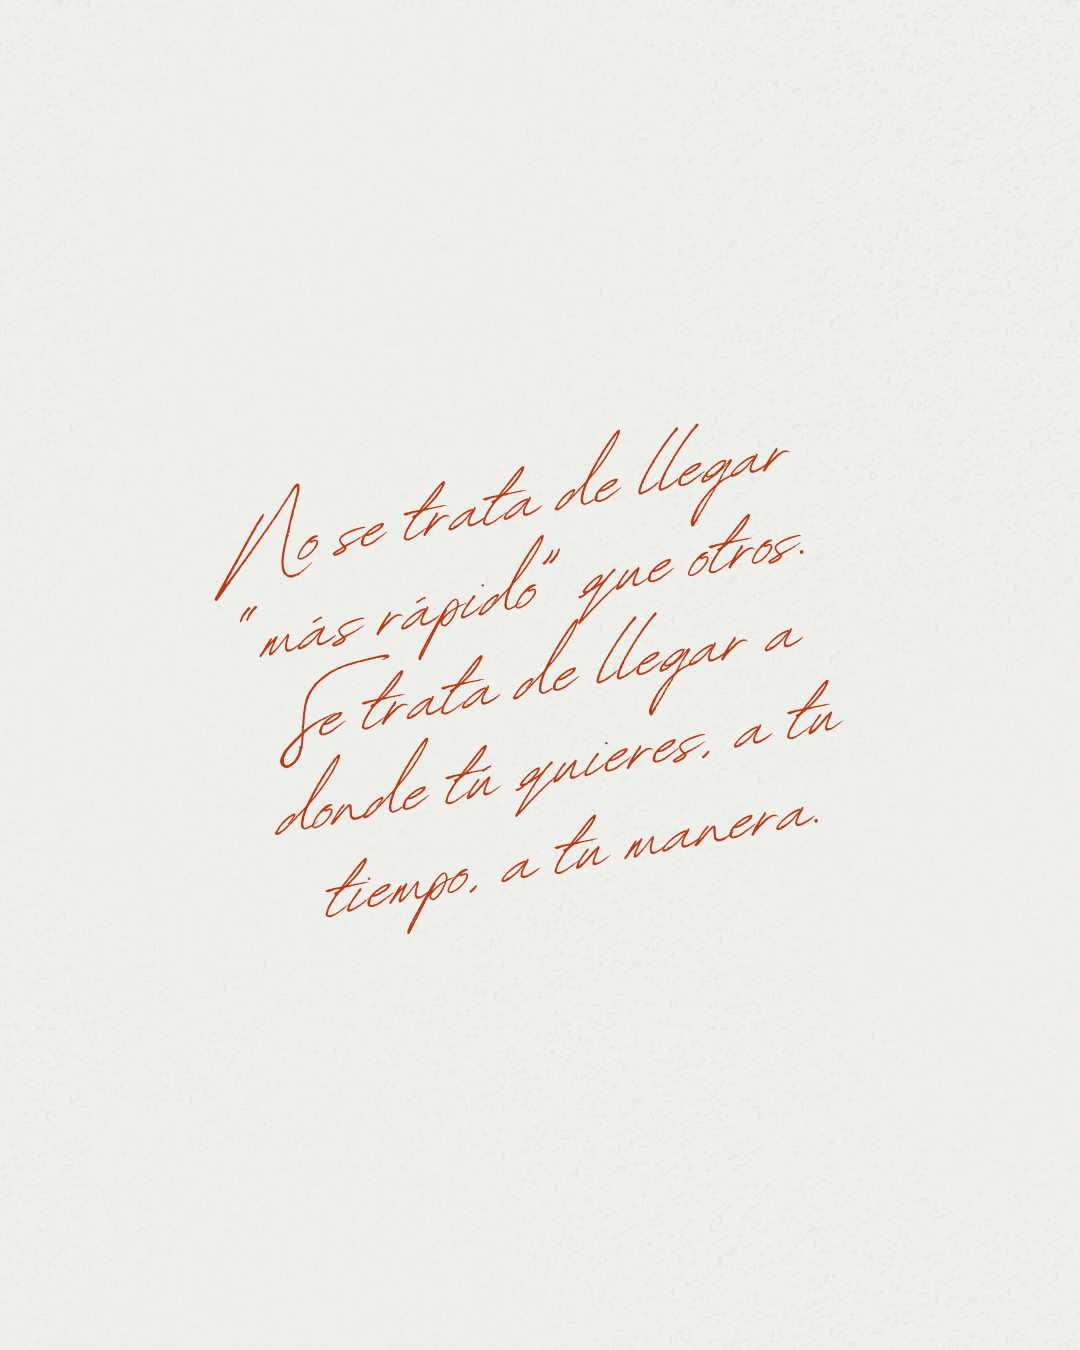 No se trata de llegar
"más rápido" que otros.
Se trata de llegar a
donde tú quieres, a tu
tiempo, a tu manera.